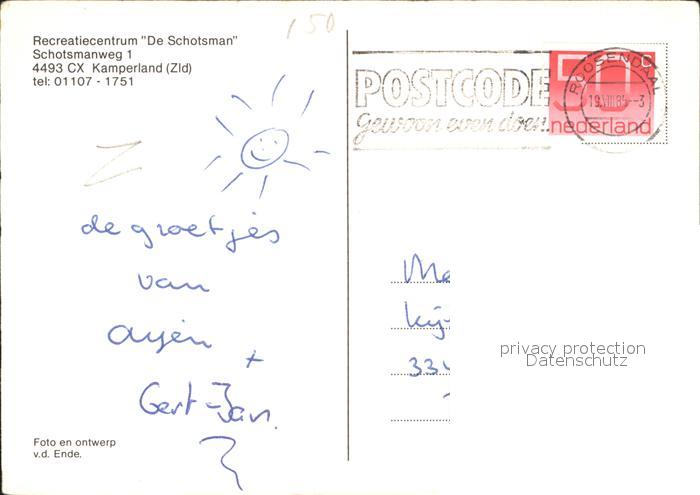 150
Recreatiecentrum "De Schotsman"
Schotsmanweg 1
4493 CX Kamperland (Zld)
tel: 01107 - 1751
POSTCODE
Gewoon even doen!
50c
nederland
ROOSENDAAL
19.VIII.8 -3
Z
de groetjes
van
Arjen
+
Gert-Jan.
Me
kij
334
privacy protection
Datenschutz
Foto en ontwerp
v.d. Ende.